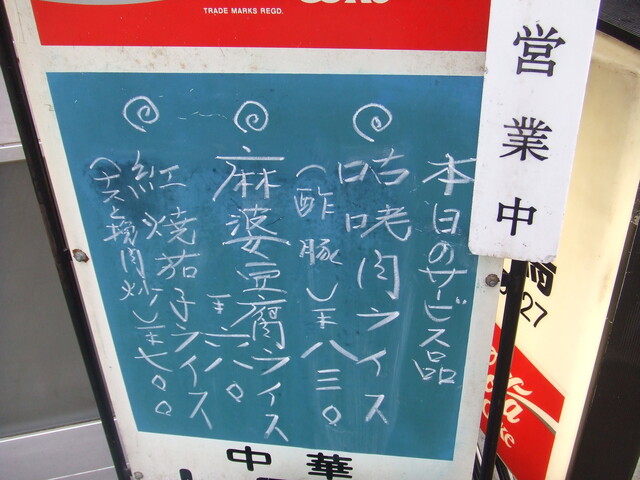 TRADE MARKS REGD.
営業中
本日のサービス品
咕咾肉ライス
(酢豚) ¥八三〇
麻婆豆腐ライス
¥六八〇
紅焼茄子ライス
(ナスと挽肉炒) ¥七〇〇
中華
27